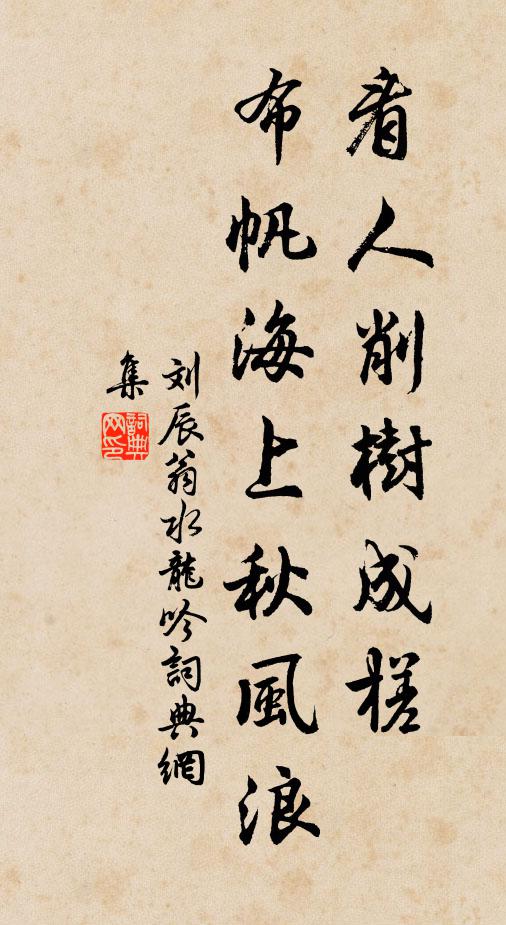 看人削樹成槎
布帆海上秋風浪
刘辰翁水龍吟詞典網
集
詞典
网印